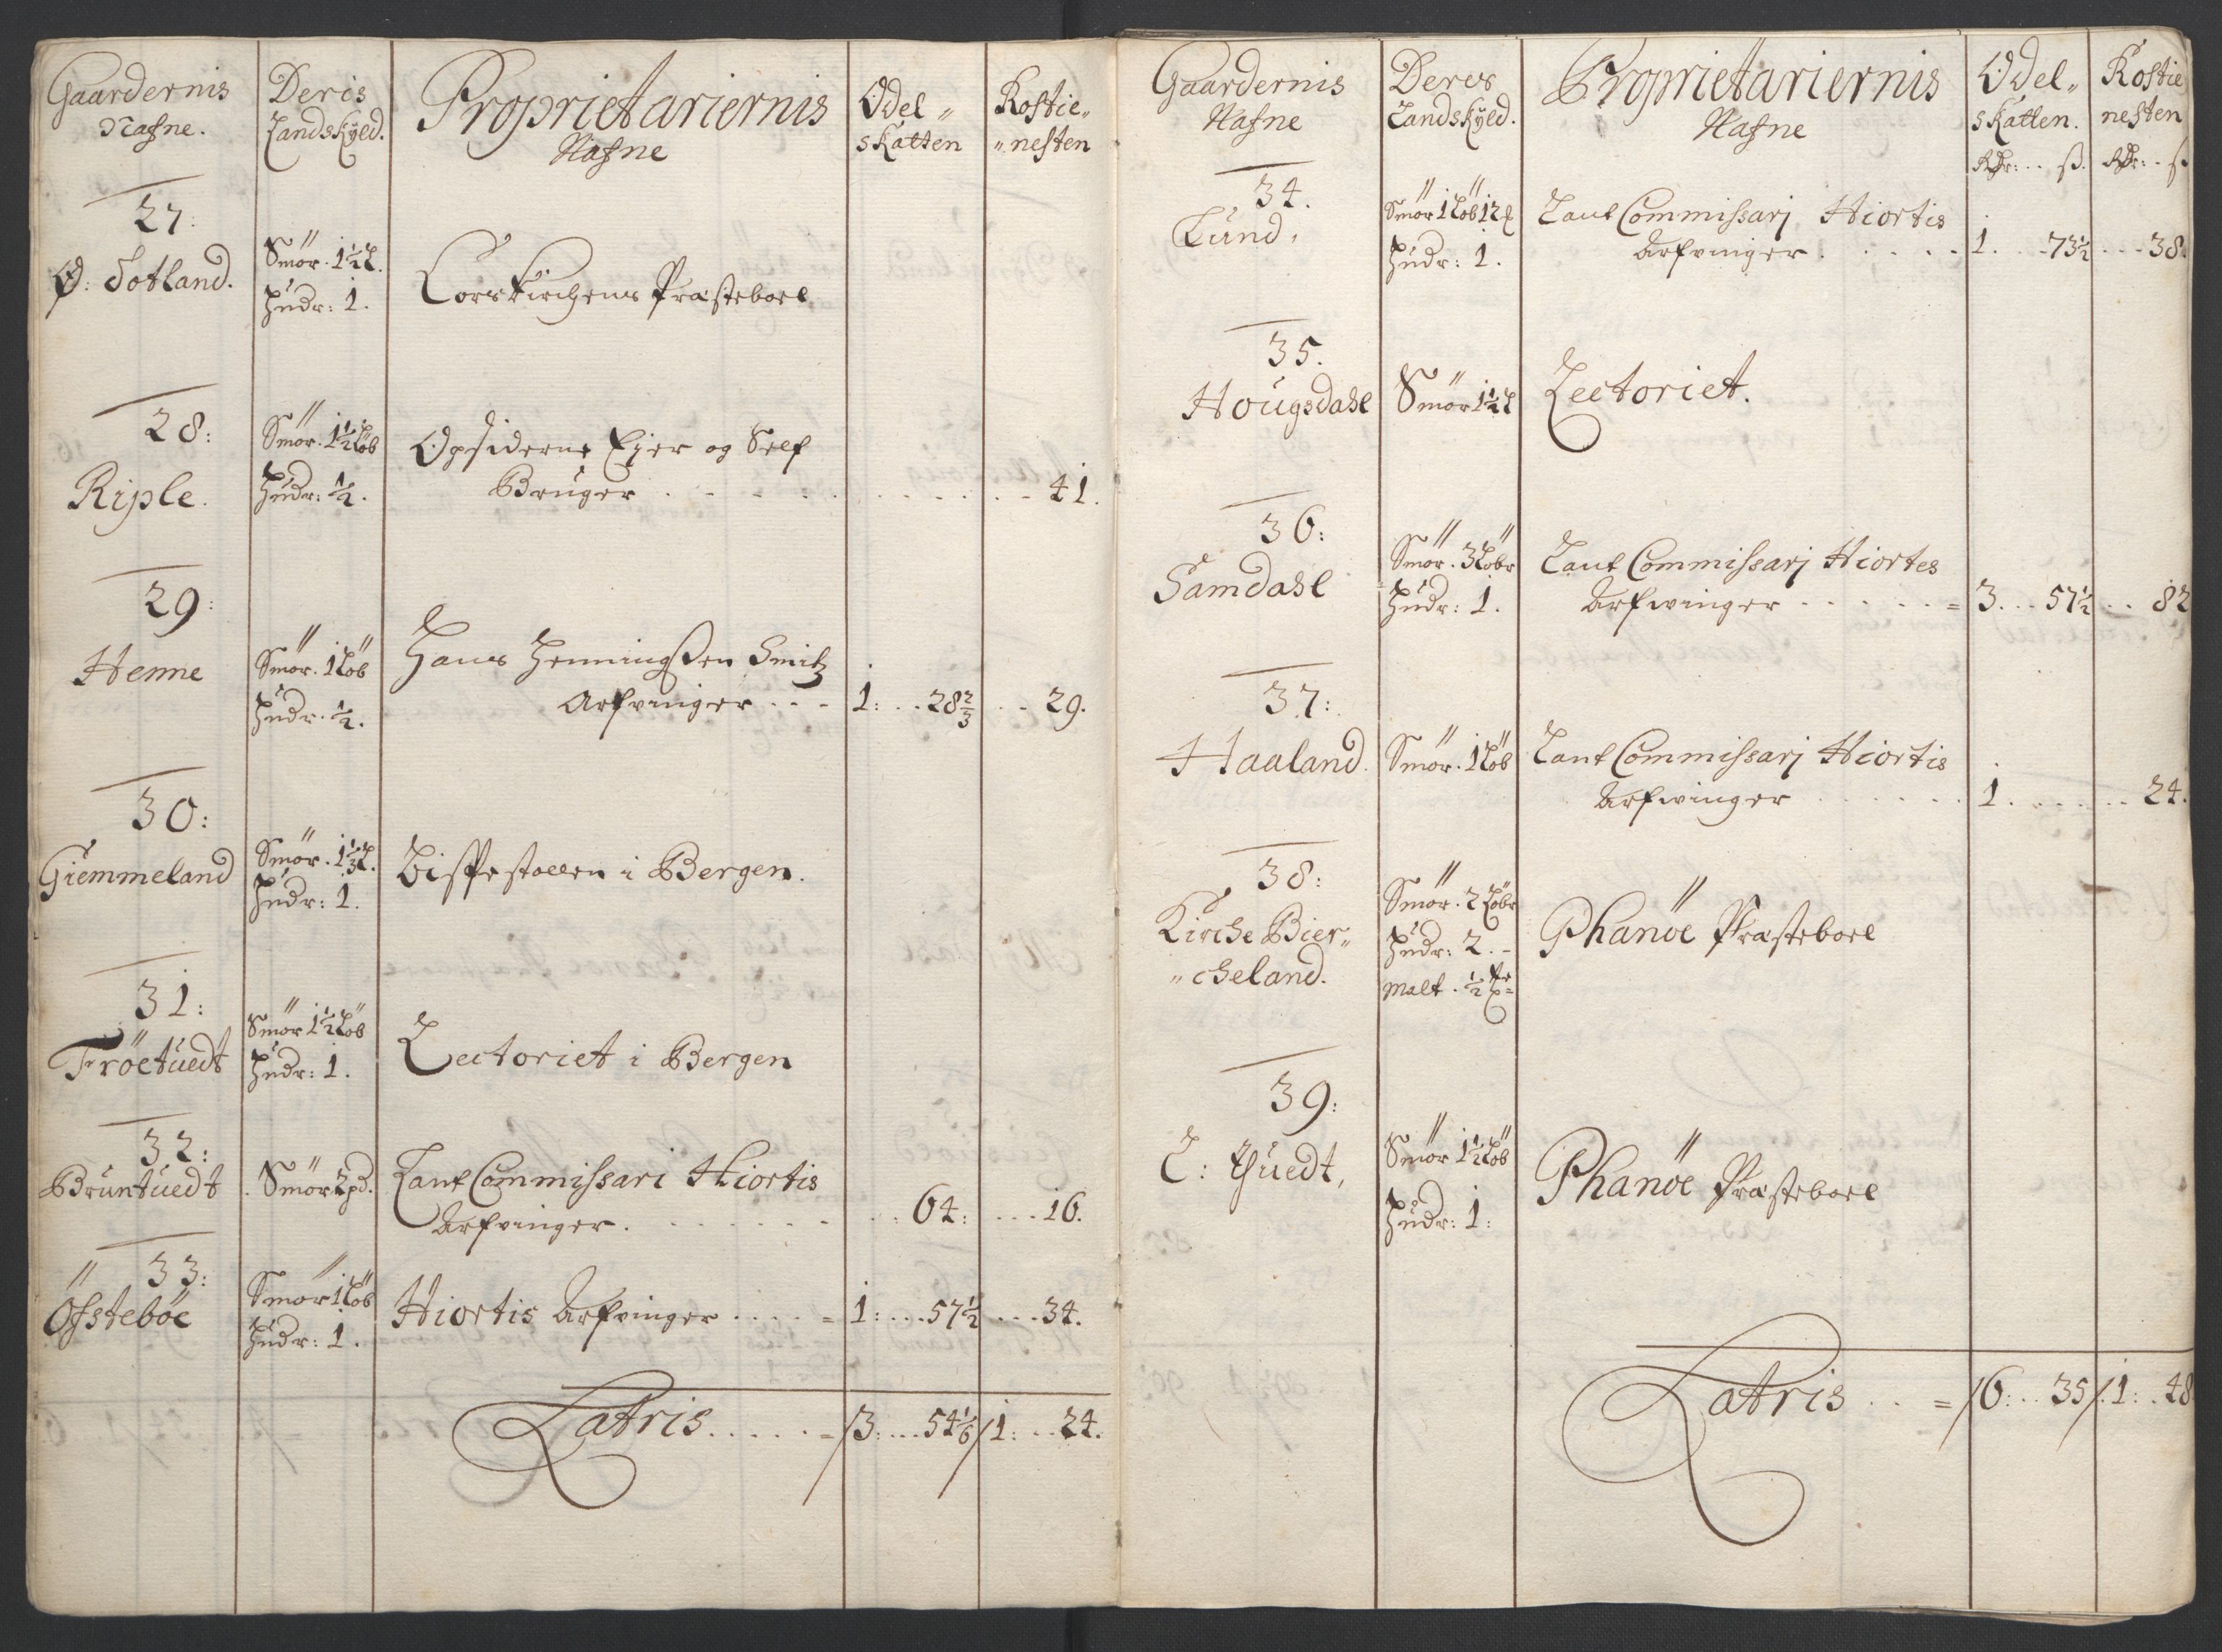 Gaardernis
Nafne.
Deris
Landskyld.
Proprietariernis
Nafne
Odel„
skatten
Rostie„
„nesten
27:
Ø: Totland.
Smör. 1½ L.
Hudr: 1.
Corskirchens Præsteboel
28:
Riple.
Smör. 1½ Löb
Hudr: ½.
Opsiderne Ejer og Self
Bruger . . . . . . . . 41.
29:
Henne
Smör. 1 Löb
Hudr. ½.
Hans Henningsen Smitz
Arfvinger . . - 1: . . 28⅔ . . 29.
30:
Giemmeland
Smör. 1⅓ L.
Hudr: 1.
Bispestollen i Bergen.
31:
Tröetuedt
Smör 1½ Löb
Hudr: 1.
Lectoriet i Bergen
32:
Bruntuedt
Smör 2 pd.
Laut Commissari Hiortis
Arfvinger . . . . . . 64: . . . 16.
33:
Öfsteböe
Smör 1 Löb
Hudr: 1.
Hiortis Arfvinger . . . . = 1: . . . 57½ . . . 34.
Latris . . . . . = /3: . . . 54⅙ /1: . . 24.
Gaardernis
Nafne
Deris
Landskyld.
Proprietariernis
Nafne
Odel„
skatten.
Rdr: . . ß.
Rostie
nesten
Rdr: . ß
34.
Lund.
Smör 1 Löb 12
Hudr: 1.
Laut Commissarj Hiortis
Arfvinger . . . . . 1. . . 73½ . . . 38.
35.
Hougsdahl
Smör 1½ L
Lectoriet.
36:
Samdahl
Smör. 3 Löbr
Hudr: 1.
Laut Commissarj Hiortes
Arfwinger . . . . . = 3. . . 57½ . . 82
37:
Haaland.
Smör. 1 Löb
Laut Commissarj Hiortis
Arfwinger . . . . . . 1. . . . . . 24.
38:
Kirche Bier„
„cheland.
Smör. 2 Löbr
Hudr: 2. -
Malt. ½
Phanöe Præsteboel
39:
L: Tuedt,
Smör 1½ Löb
Hudr: 1:
Phanöe Præsteboel
Latris . . = /6: . . 35 /. 1: . 48